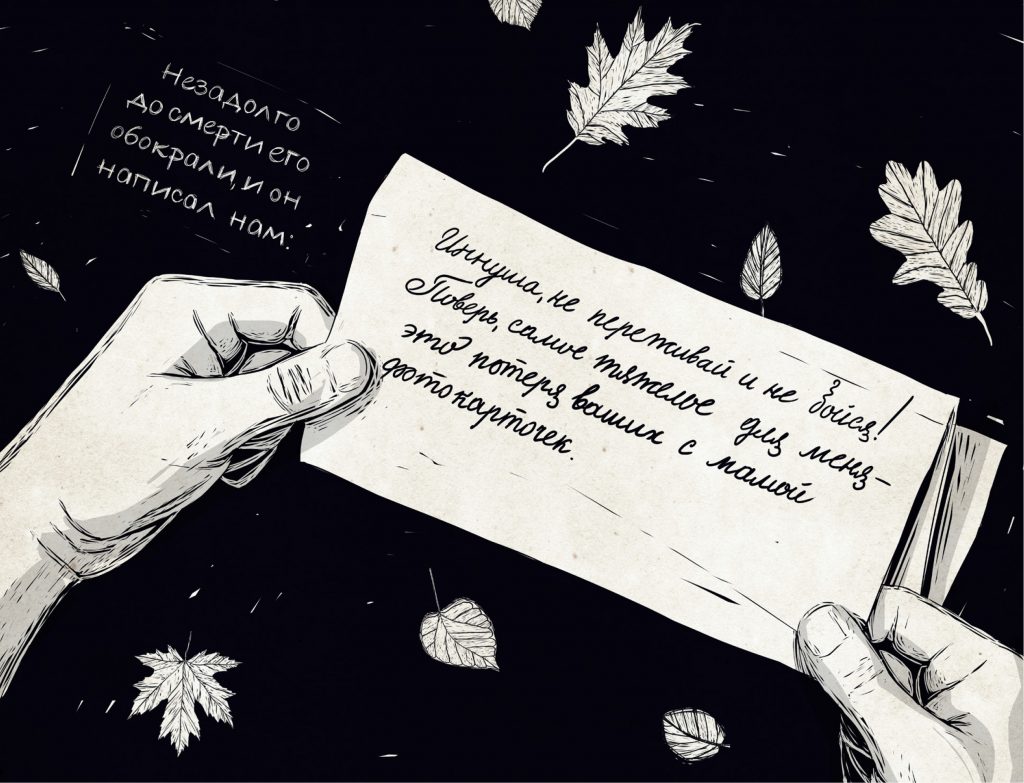 Незадолго
до смерти его
обокрали, и он
написал нам:
Иннуша, не переживай и не бойся!
Поверь, самое тяжелое для меня–
это потеря ваших с мамой
фотокарточек.